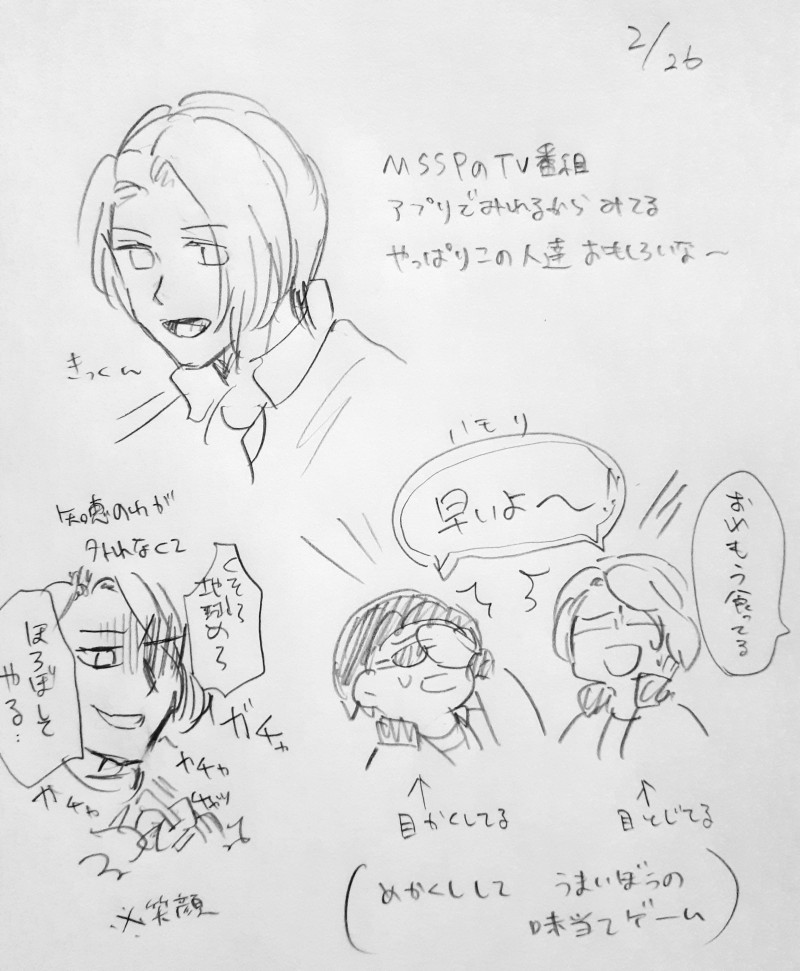 2/26
MSSPのTV番組
アプリでみれるからみてる
やっぱりこの人達おもしろいな〜
きっくん
ハモリ
早いよ〜
おめもう食ってる
知恵のわが
外れなくて
くそぅ
地球め
ほろぼして
やる…
ガチャ
ガチャ
ガチャ
※笑顔
↑
目かくしてる
↑
目とじてる
(めかくしして うまいぼうの
味当てゲーム)